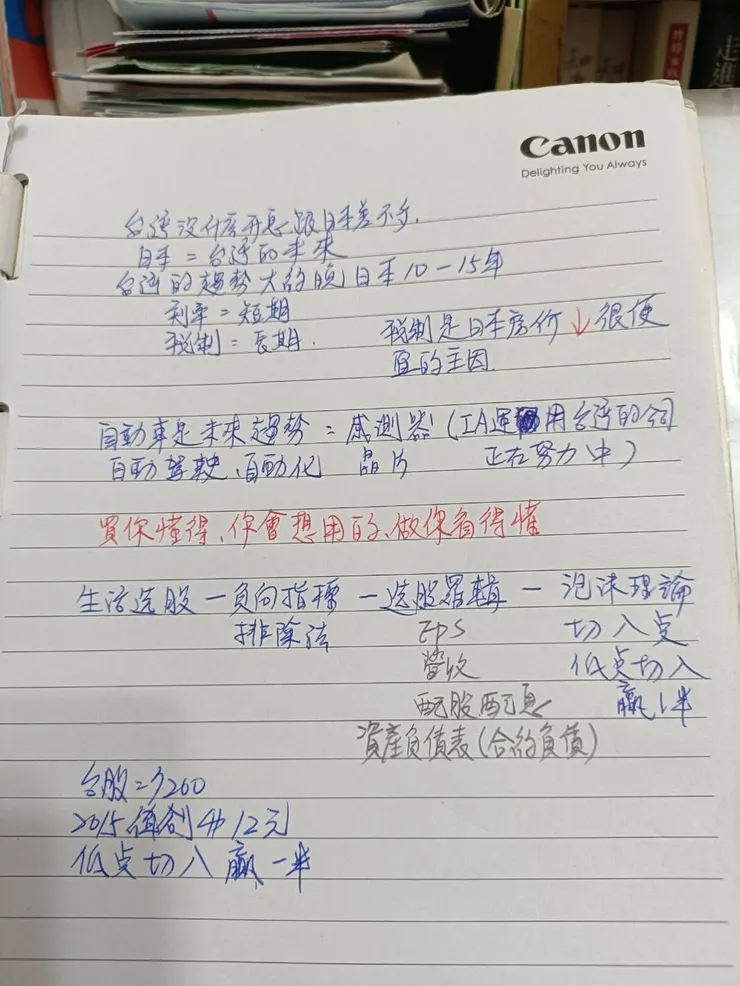 Canon
Delighting You Always
台灣沒什麼升息,跟日本差不多.
日本 = 台灣的未來
台灣的趨勢大約晚日本10-15年
利率 = 短期
稅制 = 長期. 稅制是日本房價↓很便
宜的主因
自動車是未來趨勢 = 感測器(IA運用台灣的公司
自動駕駛、自動化 晶片 正在努力中)
買你懂得、你會想用的、做你看得懂
生活选股 - 負向指標 - 选股羅輯 - 泡沫理論
排除法 EPS 切入点
營收 低点切入
配股配息 贏1半
資產負債表(合約負債)
台股 =
2015 12元
低点切入 贏一半